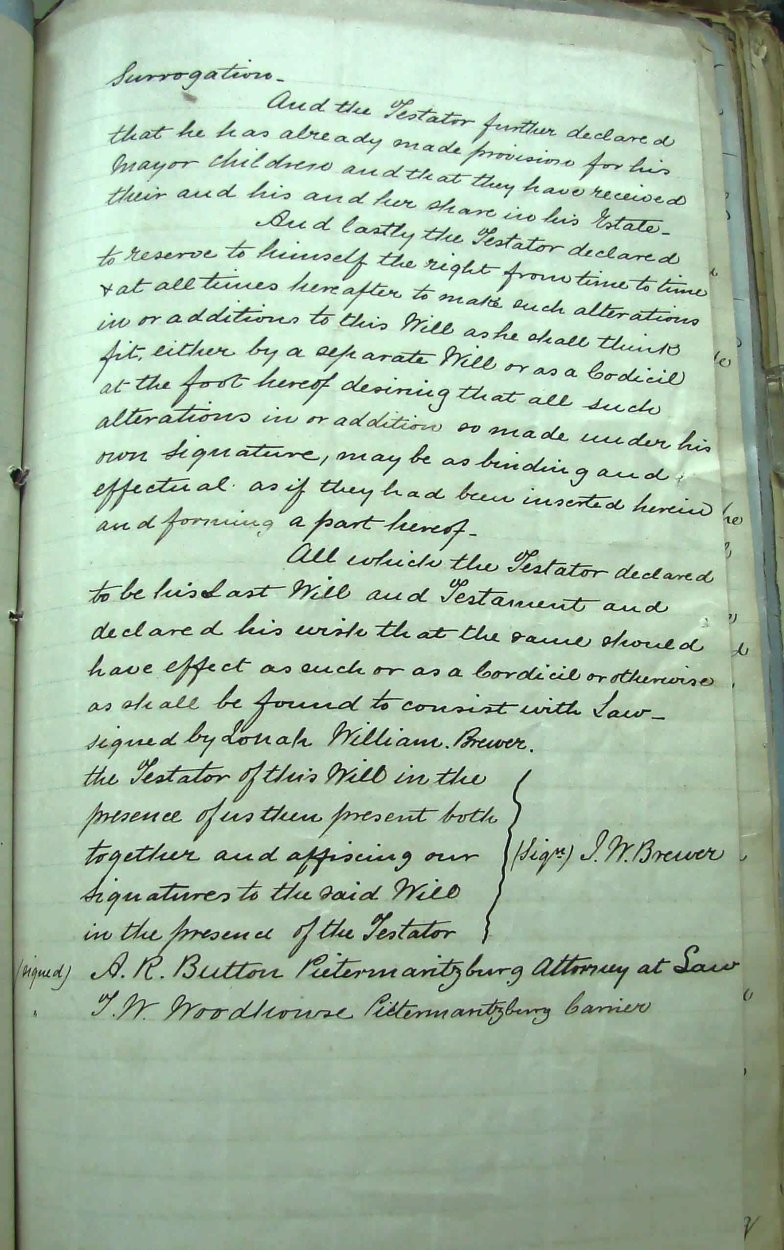 Surrogation -
And the Testator further declared
that he has already made provision for his
Mayor children and that they have received
their and his and her share in his Estate -
And lastly the Testator declared
to reserve to himself the right from time to time
& at all times hereafter to make such alterations
in or additions to this Will as he shall think
fit, either by a separate Will or as a Codicil
at the foot hereof desiring that all such
alterations in or addition so made under his
own signature, may be as binding and
effectual as if they had been inserted herein
and forming a part hereof -
All which the Testator declared
to be his Last Will and Testament and
declared his wish that the same should
have effect as such or as a Cordicil or otherwise
as shall be found to consist with Law -
signed by Jonah William. Brewer.
the Testator of this Will in the
presence of us then present both
together and affixing our
signatures to the said Will
in the presence of the Testator
(Signr) J. W. Brewer
(signed) A. R. Button Pietermaritzburg Attorney at Law
" T. W. Woodhouse Pietermaritzburg Carrier